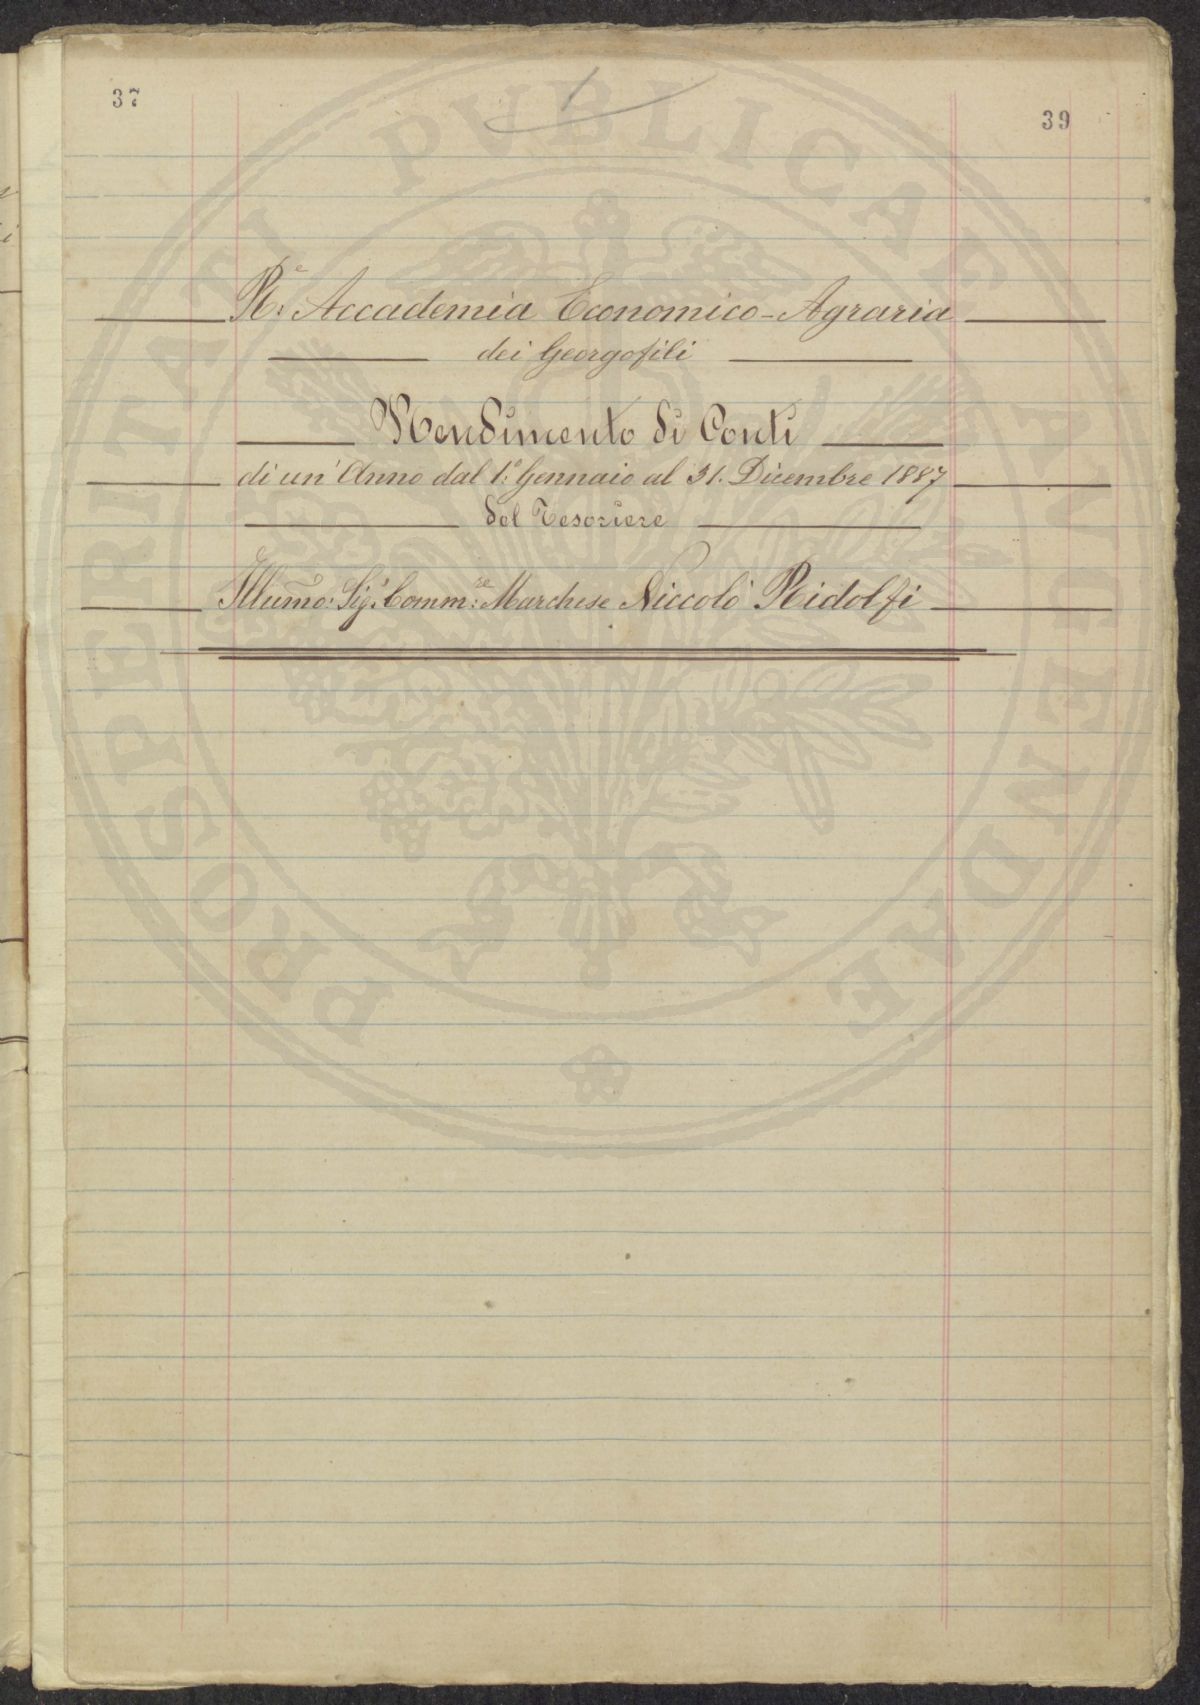 37
39
1
R.e Accademia Economico-Agraria
dei Georgofili
Rendimento di Conti
di un' Anno dal 1.o Gennaio al 31. Dicembre 1887
del Tesoriere
Illumo: Sig.r Comm:re Marchese Niccolò Ridolfi
PROSPERITATI PVBLICAE AVGENDAE